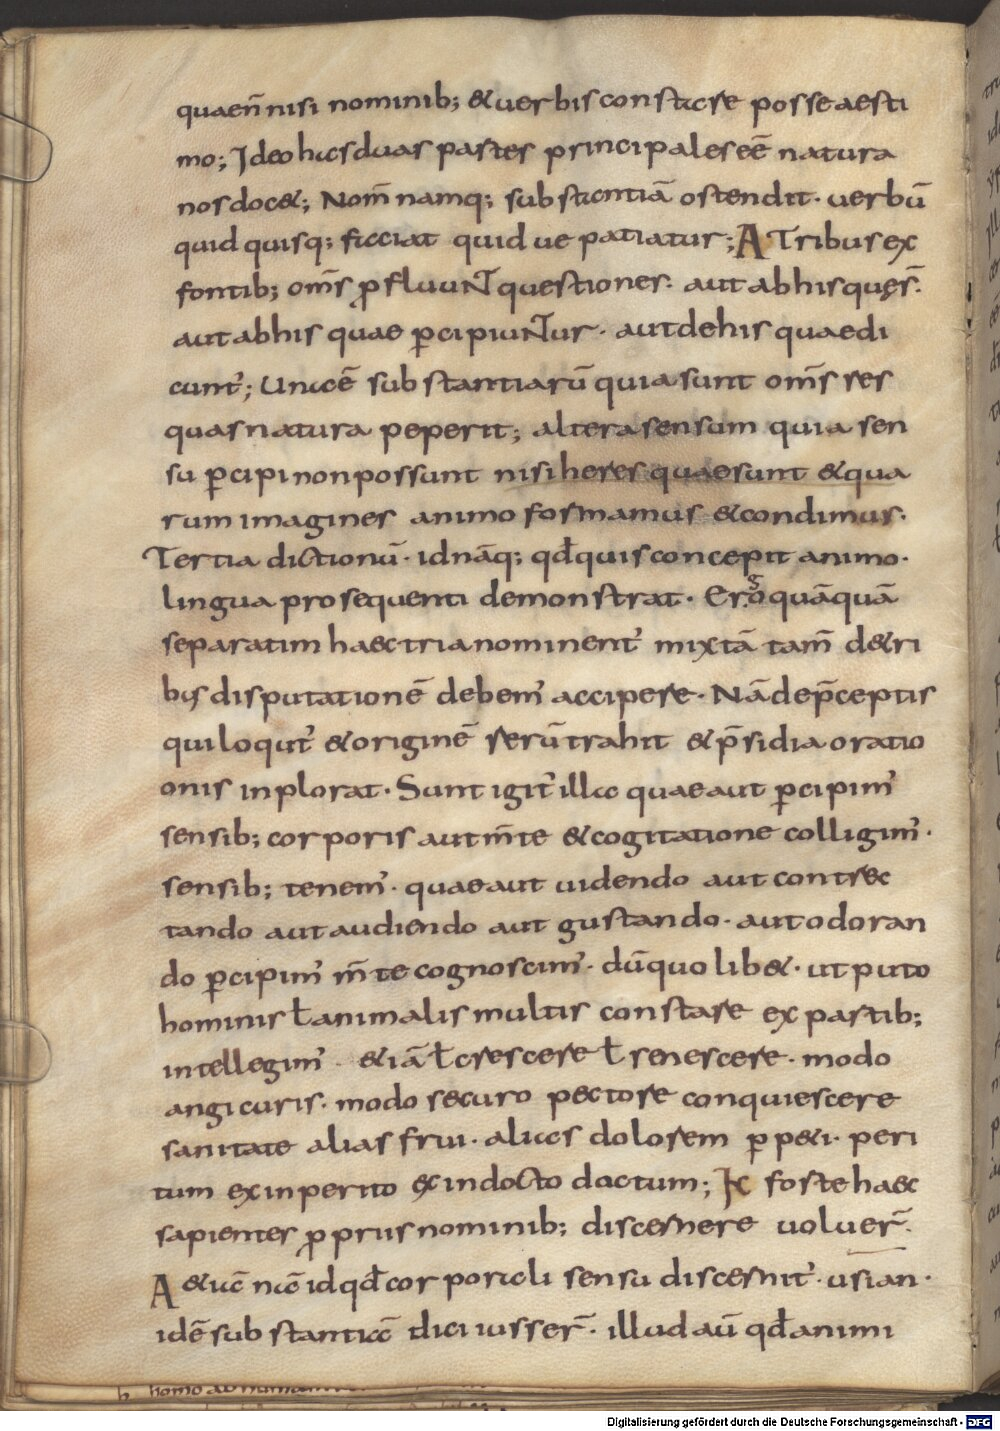 quaen̄ nisi nominib; & uerbis constare posse aesti
mo; Ideo has duas partes principales eē natura
nos doc&; Nom̄ namq; substantiā ostendit · uerbū
quid quisq; faciat quid ue patiatur; A Tribus ex
fontib; om̄s ꝓfluuNT questiones · aut ab his quęs̄ ·
aut ab his quae ꝑcipiuNTur · aut de his quae di
cunt᷒; Unaē substantiarū quia sunt om̄s res
quas natura peperit; altera sensum quia sen
su ꝑcipi non possunt nisi heres quae sunt & qua
rum imagines animo formamus & condimus ·
Tertia dictionū · id nāq; qđ quis concepit animo ·
lingua prosequenti demonstrat · Er.o quāquā
separatim haec tria nominent᷒ mixtā tam̄ de&ri
bus disputationē debem᷒ accipere · Nā de p̄ceptis
qui loquit᷒ & originē rerū trahit & p̄sidia oratio
onis inplorat · Sunt igit᷒ illa quae aut ꝑcipim᷒
sensib; corporis aut m̄te & cogitatione colligim᷒ ·
sensib; tenem᷒ · quae aut uidendo aut contrec
tando aut audiendo aut gustando · aut odoran
do ꝑcipim᷒ m̄te cognoscim᷒ · dū quolib& · ut puto
hominis ł animalis multis constare ex partib;
intellegim᷒ · & iā ł crescere ł senescere · modo
angi curis · modo securo pectore conquiescere
sanitate alias frui · alias dolorem ꝑp&i · peri
tum ex inperito ex indocto doctum; Ac forte haec
sapientes ꝓpriis nominib; discernere uoluer̄ ·
A &uē nā id qđ corporali sensu discernit᷒ · usian ·
idē substantiā dici iusser̄ · illud aū qđ animi
Digitalisierung gefördert durch die Deutsche Forschungsgemeinschaft - DFG